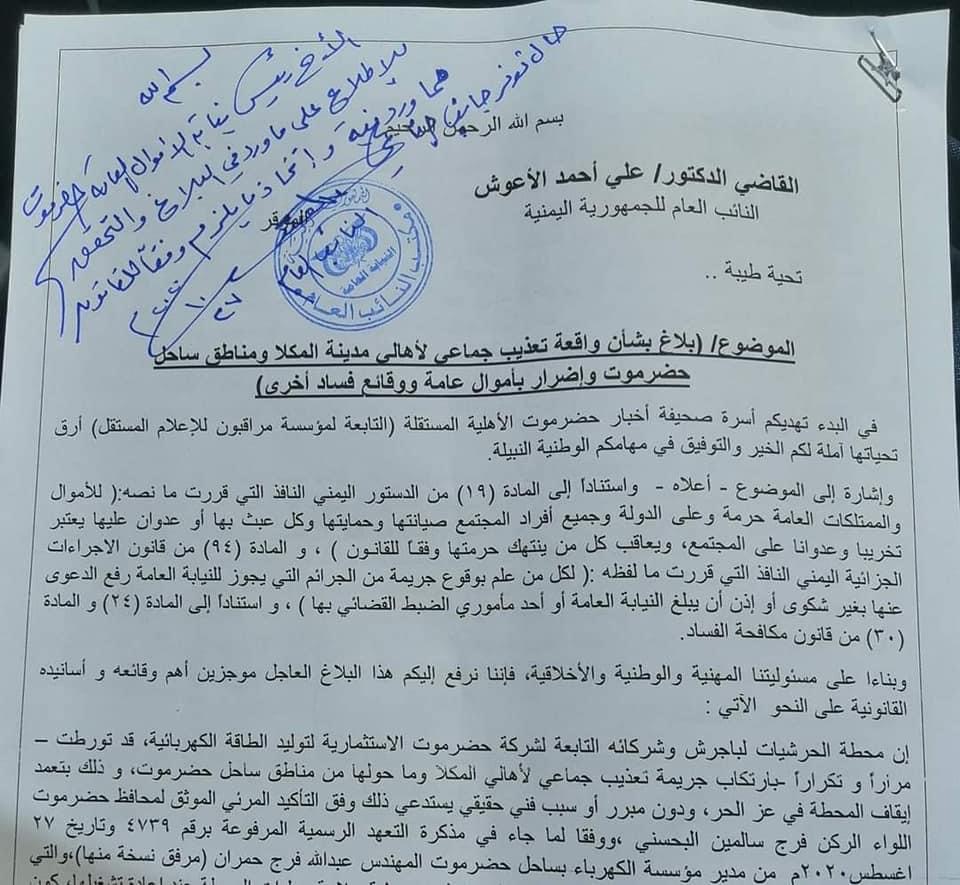 بسم الله
الأخ رئيس نيابة الأموال العامة حضرموت
للإطلاع على ما ورد في البلاغ والتحقق
مما ورد فيه واتخاذ ما يلزم وفقاً للقانون
حال توفر
النائب العام
بسم الله الرحمن الرحيم
القاضي الدكتور/ علي أحمد الأعوش
النائب العام للجمهورية اليمنية
الموقر
النيابة العامة
مكتب النائب العام
تحية طيبة ..
الموضوع/ (بلاغ بشأن واقعة تعذيب جماعي لأهالي مدينة المكلا ومناطق ساحل
حضرموت وإضرار بأموال عامة ووقائع فساد أخرى)
في البدء تهديكم أسرة صحيفة أخبار حضرموت الأهلية المستقلة (التابعة لمؤسسة مراقبون للإعلام المستقل) أرق
تحياتها آملة لكم الخير والتوفيق في مهامكم الوطنية النبيلة.
وإشارة إلى الموضوع - أعلاه - واستناداً إلى المادة (١٩) من الدستور اليمني النافذ التي قررت ما نصه:( للأموال
والممتلكات العامة حرمة وعلى الدولة وجميع أفراد المجتمع صيانتها وحمايتها وكل عبث بها أو عدوان عليها يعتبر
تخريبا وعدوانا على المجتمع، ويعاقب كل من ينتهك حرمتها وفقاً للقانون ) ، و المادة (٩٤) من قانون الاجراءات
الجزائية اليمني النافذ التي قررت ما لفظه :( لكل من علم بوقوع جريمة من الجرائم التي يجوز للنيابة العامة رفع الدعوى
عنها بغير شكوى أو إذن أن يبلغ النيابة العامة أو أحد مأموري الضبط القضائي بها ) ، و استناداً إلى المادة (٢٤) و المادة
(٣٠) من قانون مكافحة الفساد.
وبناءا على مسئوليتنا المهنية والوطنية والأخلاقية، فإننا نرفع إليكم هذا البلاغ العاجل موجزين أهم وقائعه و أسانيده
القانونية على النحو الآتي :
إن محطة الحرشيات لباجرش وشركائه التابعة لشركة حضرموت الاستثمارية لتوليد الطاقة الكهربائية، قد تورطت –
مراراً و تكراراً -بارتكاب جريمة تعذيب جماعي لأهالي المكلا وما حولها من مناطق ساحل حضرموت، و ذلك بتعمد
إيقاف المحطة في عز الحر، ودون مبرر أو سبب فني حقيقي يستدعي ذلك وفق التأكيد المرئي الموثق لمحافظ حضرموت
اللواء الركن فرج سالمين البحسني ،ووفقا لما جاء في مذكرة التعهد الرسمية المرفوعة برقم ٤٧٣٩ وتاريخ ٢٧
اغسطس٢٠٢٠م من مدير مؤسسة الكهرباء بساحل حضرموت المهندس عبدالله فرج حمران (مرفق نسخة منها)،والتي